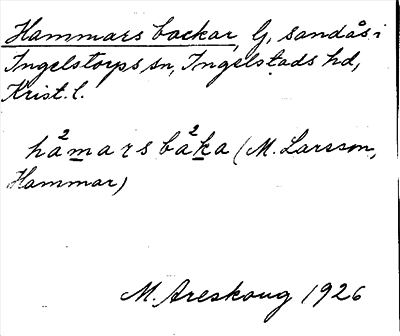 Hammars backar, G, sandås i
Ingelstorps sn, Ingelstads hd,
Krist. l.
hå²marsbå²ka (M. Larsson,
Hammar)
M. Areskoug 1926